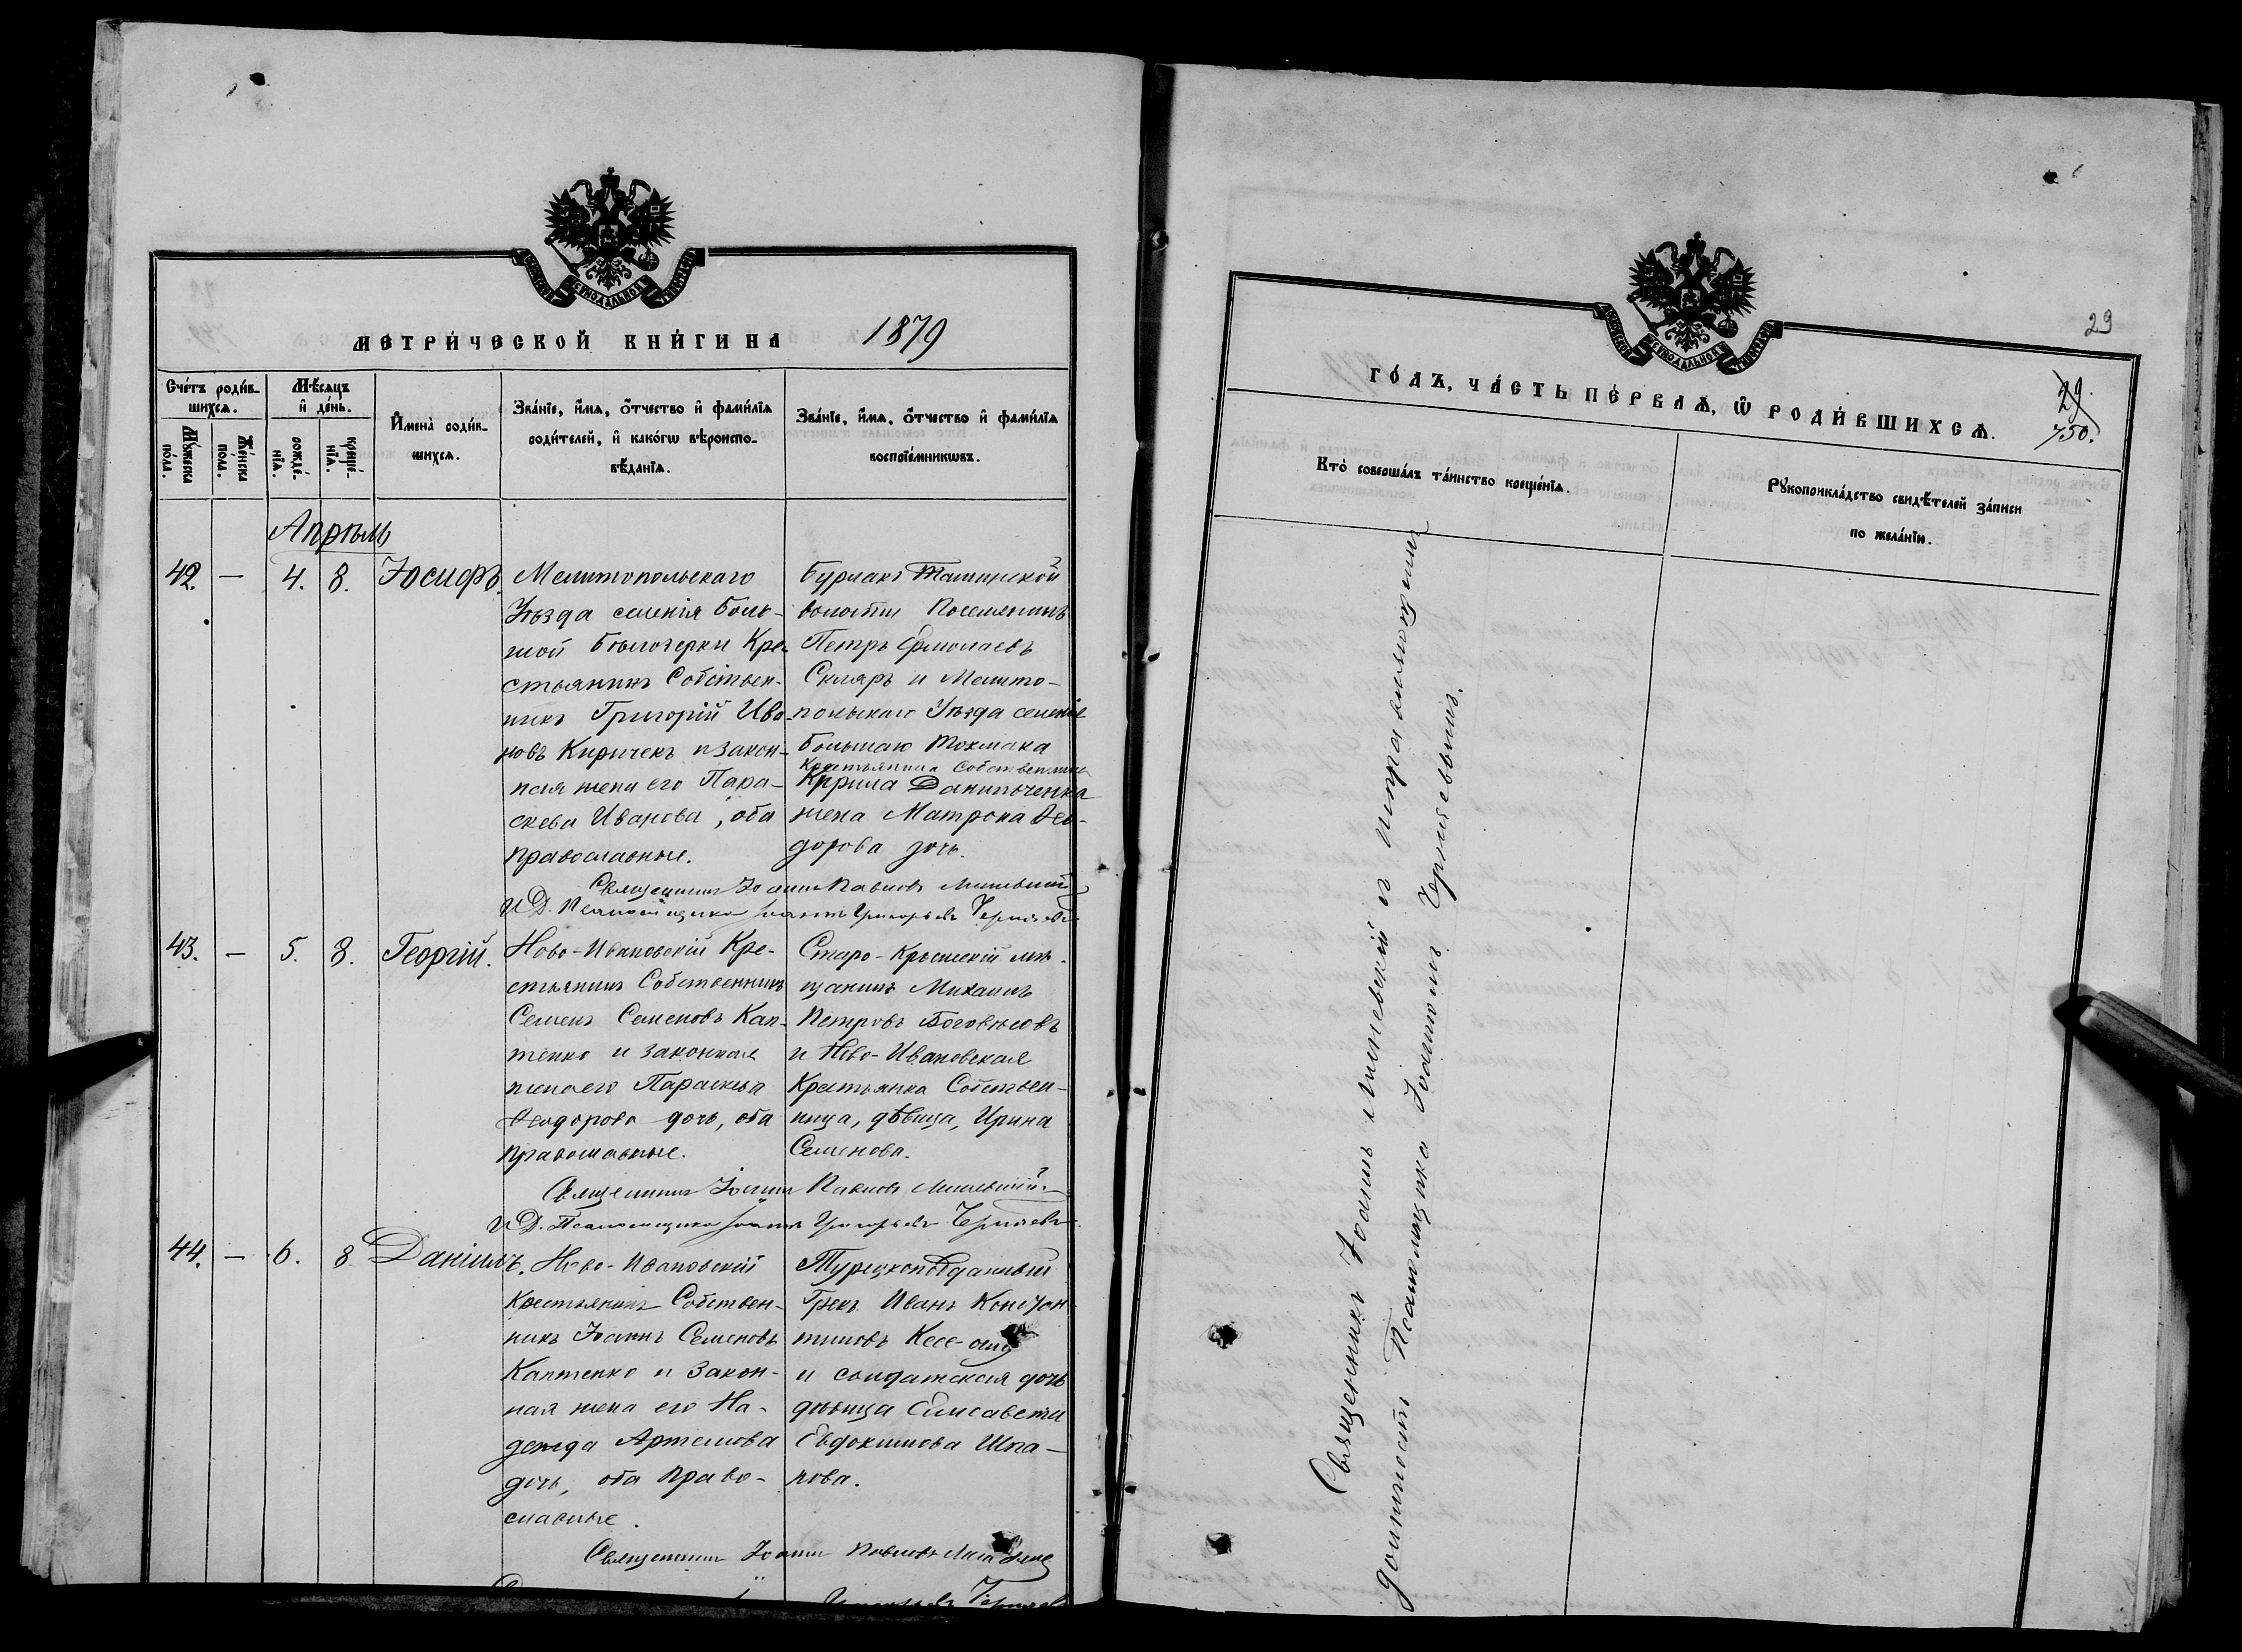 МЕТРИ́ЧЕСКОЙ КНИ́ГИ НА 1879
Сче́тъ роди́в-
шихсѧ.
Мѣ́сѧцъ
и҆ де́нь.
И҆мена̀ роди́в-
шихсѧ.
Зва́нїе, и҆́мѧ, ѻ҆́тчество и҆ фами́лїѧ
роди́телей, и҆ како́гѡ вѣроиспо-
вѣ́данїѧ.
Зва́нїе, и҆́мѧ, ѻ҆́тчество и҆ фами́лїѧ
воспрїе́мникѡвъ.
Мꙋ́жеска
по́ла.
Же́нска
по́ла.
рожде́-
нїѧ.
креще́-
нїѧ.
Апрѣль
42. — 4. 8. Іосифъ.
Мелитопольскаго
Уѣзда селенія Боль-
шой Бѣлозерки Кре-
стьянинъ Собствен-
никъ Григорій Ива-
новъ Киричекъ и закон-
ная жена его Пара-
скева Иванова, оба
православные.
Бурлакъ Ташинской
волости Поселянинъ
Петръ Ермолаевъ
Скляръ и Мелито-
польскаго Уѣзда селенія
Большаго Токмака
Крестьянина Собственника
Кирила Данильченка
жена Матрона Ѳео-
дорова дочь.
Священникъ Іоаннъ Павловъ Минѣвскій
И. Д. Псаломщика Іоаннъ Григорьевъ Черняевъ
43. — 5. 8. Георгій.
Ново-Ивановскій Кре-
стьянинъ Собственникъ
Семенъ Семеновъ Кап-
тенко и законная
жена его Параскева
Ѳеодорова дочь, оба
православные.
Старо-Крымскій мѣ-
щанинъ Михаилъ
Петровъ Боговѣсовъ
и Ново-Ивановская
Крестьянка Собствен-
ница, дѣвица, Ирина
Семенова.
Священникъ Іоаннъ Павловъ Минѣвскій.
И. Д. Псаломщика Іоаннъ Григорьевъ Черняевъ.
44. — 6. 8 Даніилъ.
Ново-Ивановскій
Крестьянинъ Собствен-
никъ Іоаннъ Семеновъ
Каптенко и Закон-
ная жена его На-
дежда Артемова
дочь, оба право-
славные.
Турецкоподданный
Грекъ Иванъ Констан-
тиновъ
и солдатская дочь
дѣвица Елисавета
Евдокимова Шпа-
кова.
Священникъ Іоаннъ Павловъ
Григорьевъ Черняевъ
29
ГО́ДЪ, ЧА́СТЬ ПЕ́РВАѦ, Ѡ҆ РОДИ́ВШИХСѦ.
29.
750.
Кто̀ соверша́лъ та́инство креще́нїѧ.
Рꙋкоприкла́дство свидѣ́телей за́писи
по жела́нїю.
Священникъ Іоаннъ Минѣвскій съ исправляющимъ
должность Псаломщика Іоанномъ Черняевымъ.